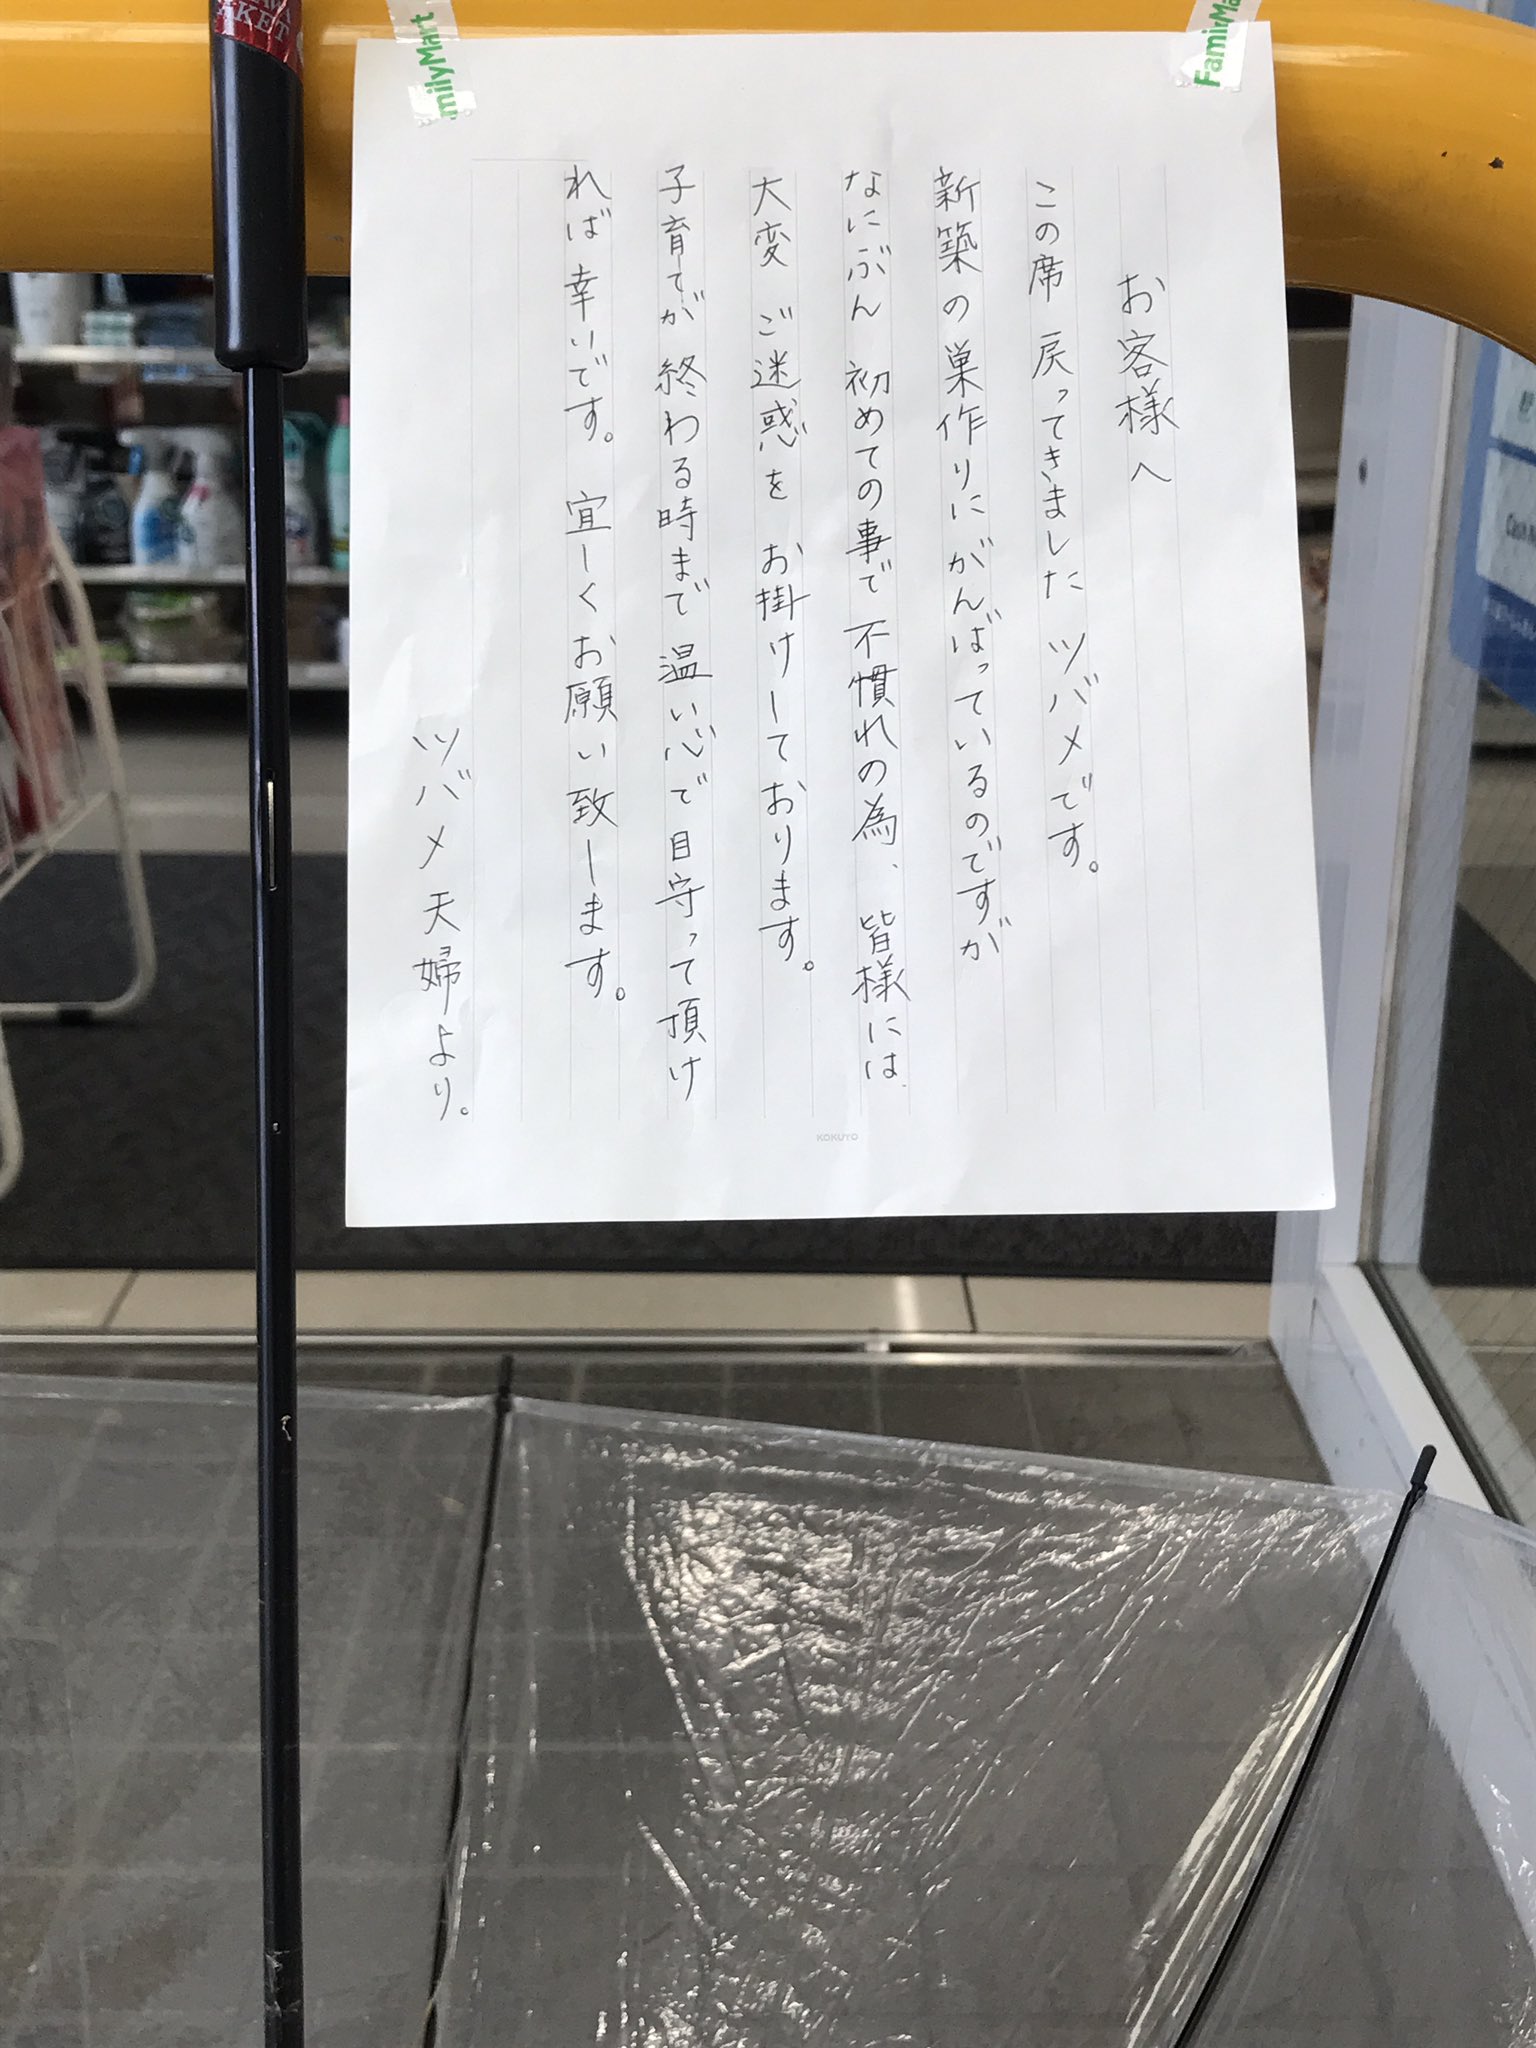 お客様へ
この席 戻ってきました ツバメです。
新築の巣作りにがんばっているのですが
なにぶん 初めての事で 不慣れの為、皆様には
大変 ご迷惑を お掛けしております。
子育てが 終わる時まで 温い心で目守って頂け
れば幸いです。 宜しくお願い致します。
ツバメ夫婦より。
KOKUYO
milyMart
FamilyMa
AKET